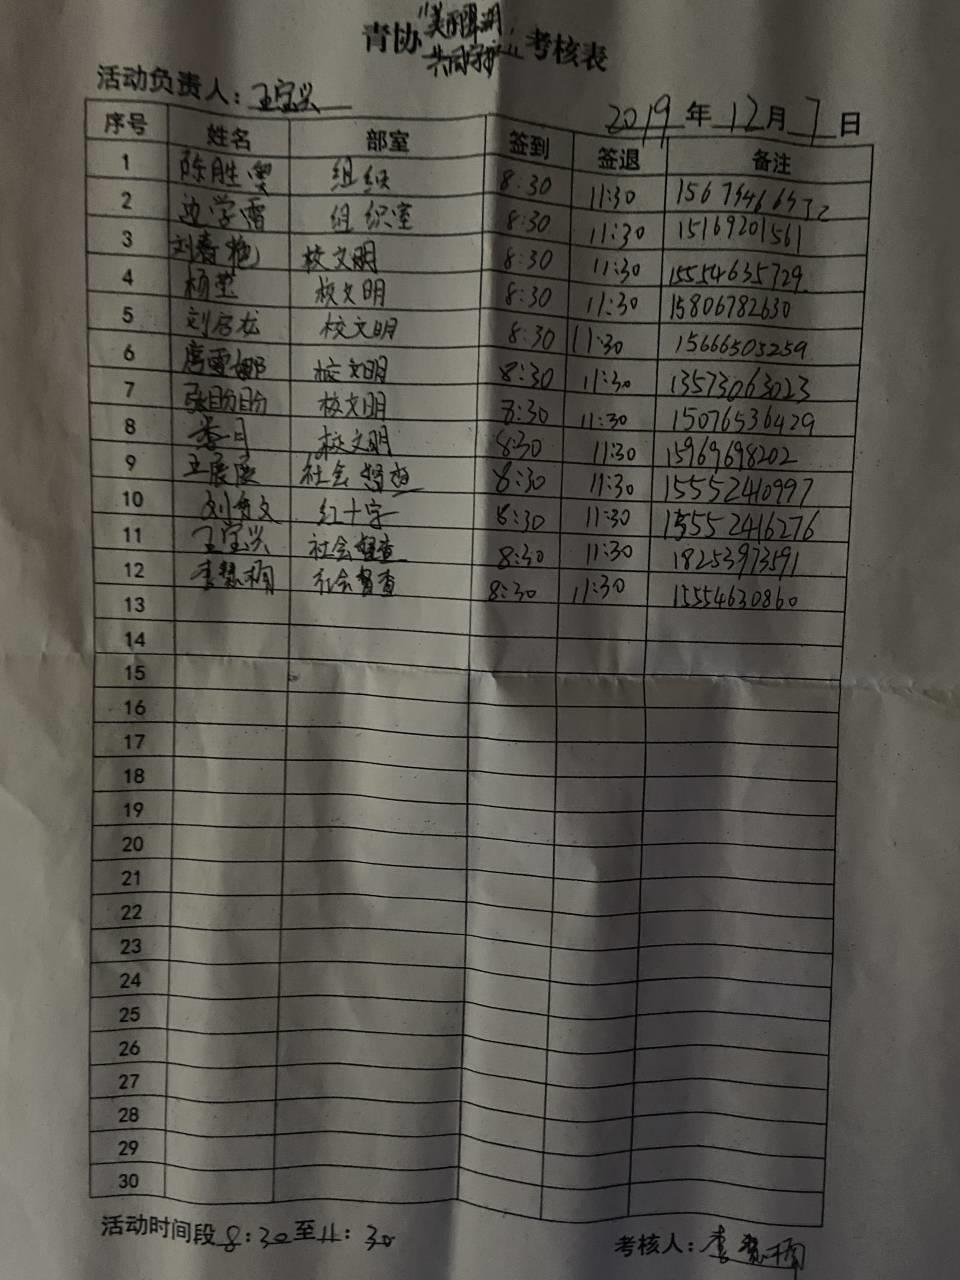 青协"美丽翠湖,共同守护"考核表
活动负责人:王宝兴
2019年12月7日
序号 姓名 部室 签到 签退 备注
1 陈胜 组织 8:30 11:30
2 边学雷 组织室 8:30 11:30 15169201561
3 刘春艳 校文明 8:30 11:30 15554635729
4 杨莹 校文明 8:30 11:30 15806782630
5 刘启龙 校文明 8:30 11:30 15666505259
6 席雪娜 校文明 8:30 11:30 13573063023
7 张盼盼 校文明 8:30 11:30 15076536429
8 李月 校文明 8:30 11:30 15969698202
9 王展 社会督查 8:30 11:30 15552410997
10 刘贤文 红十字 8:30 11:30 15552416276
11 王宝兴 社会督查 8:30 11:30 18253973591
12 李慧楠 社会督查 8:30 11:30 15554630860
13
14
15
16
17
18
19
20
21
22
23
24
25
26
27
28
29
30
活动时间段8:30至11:30
考核人:李慧楠